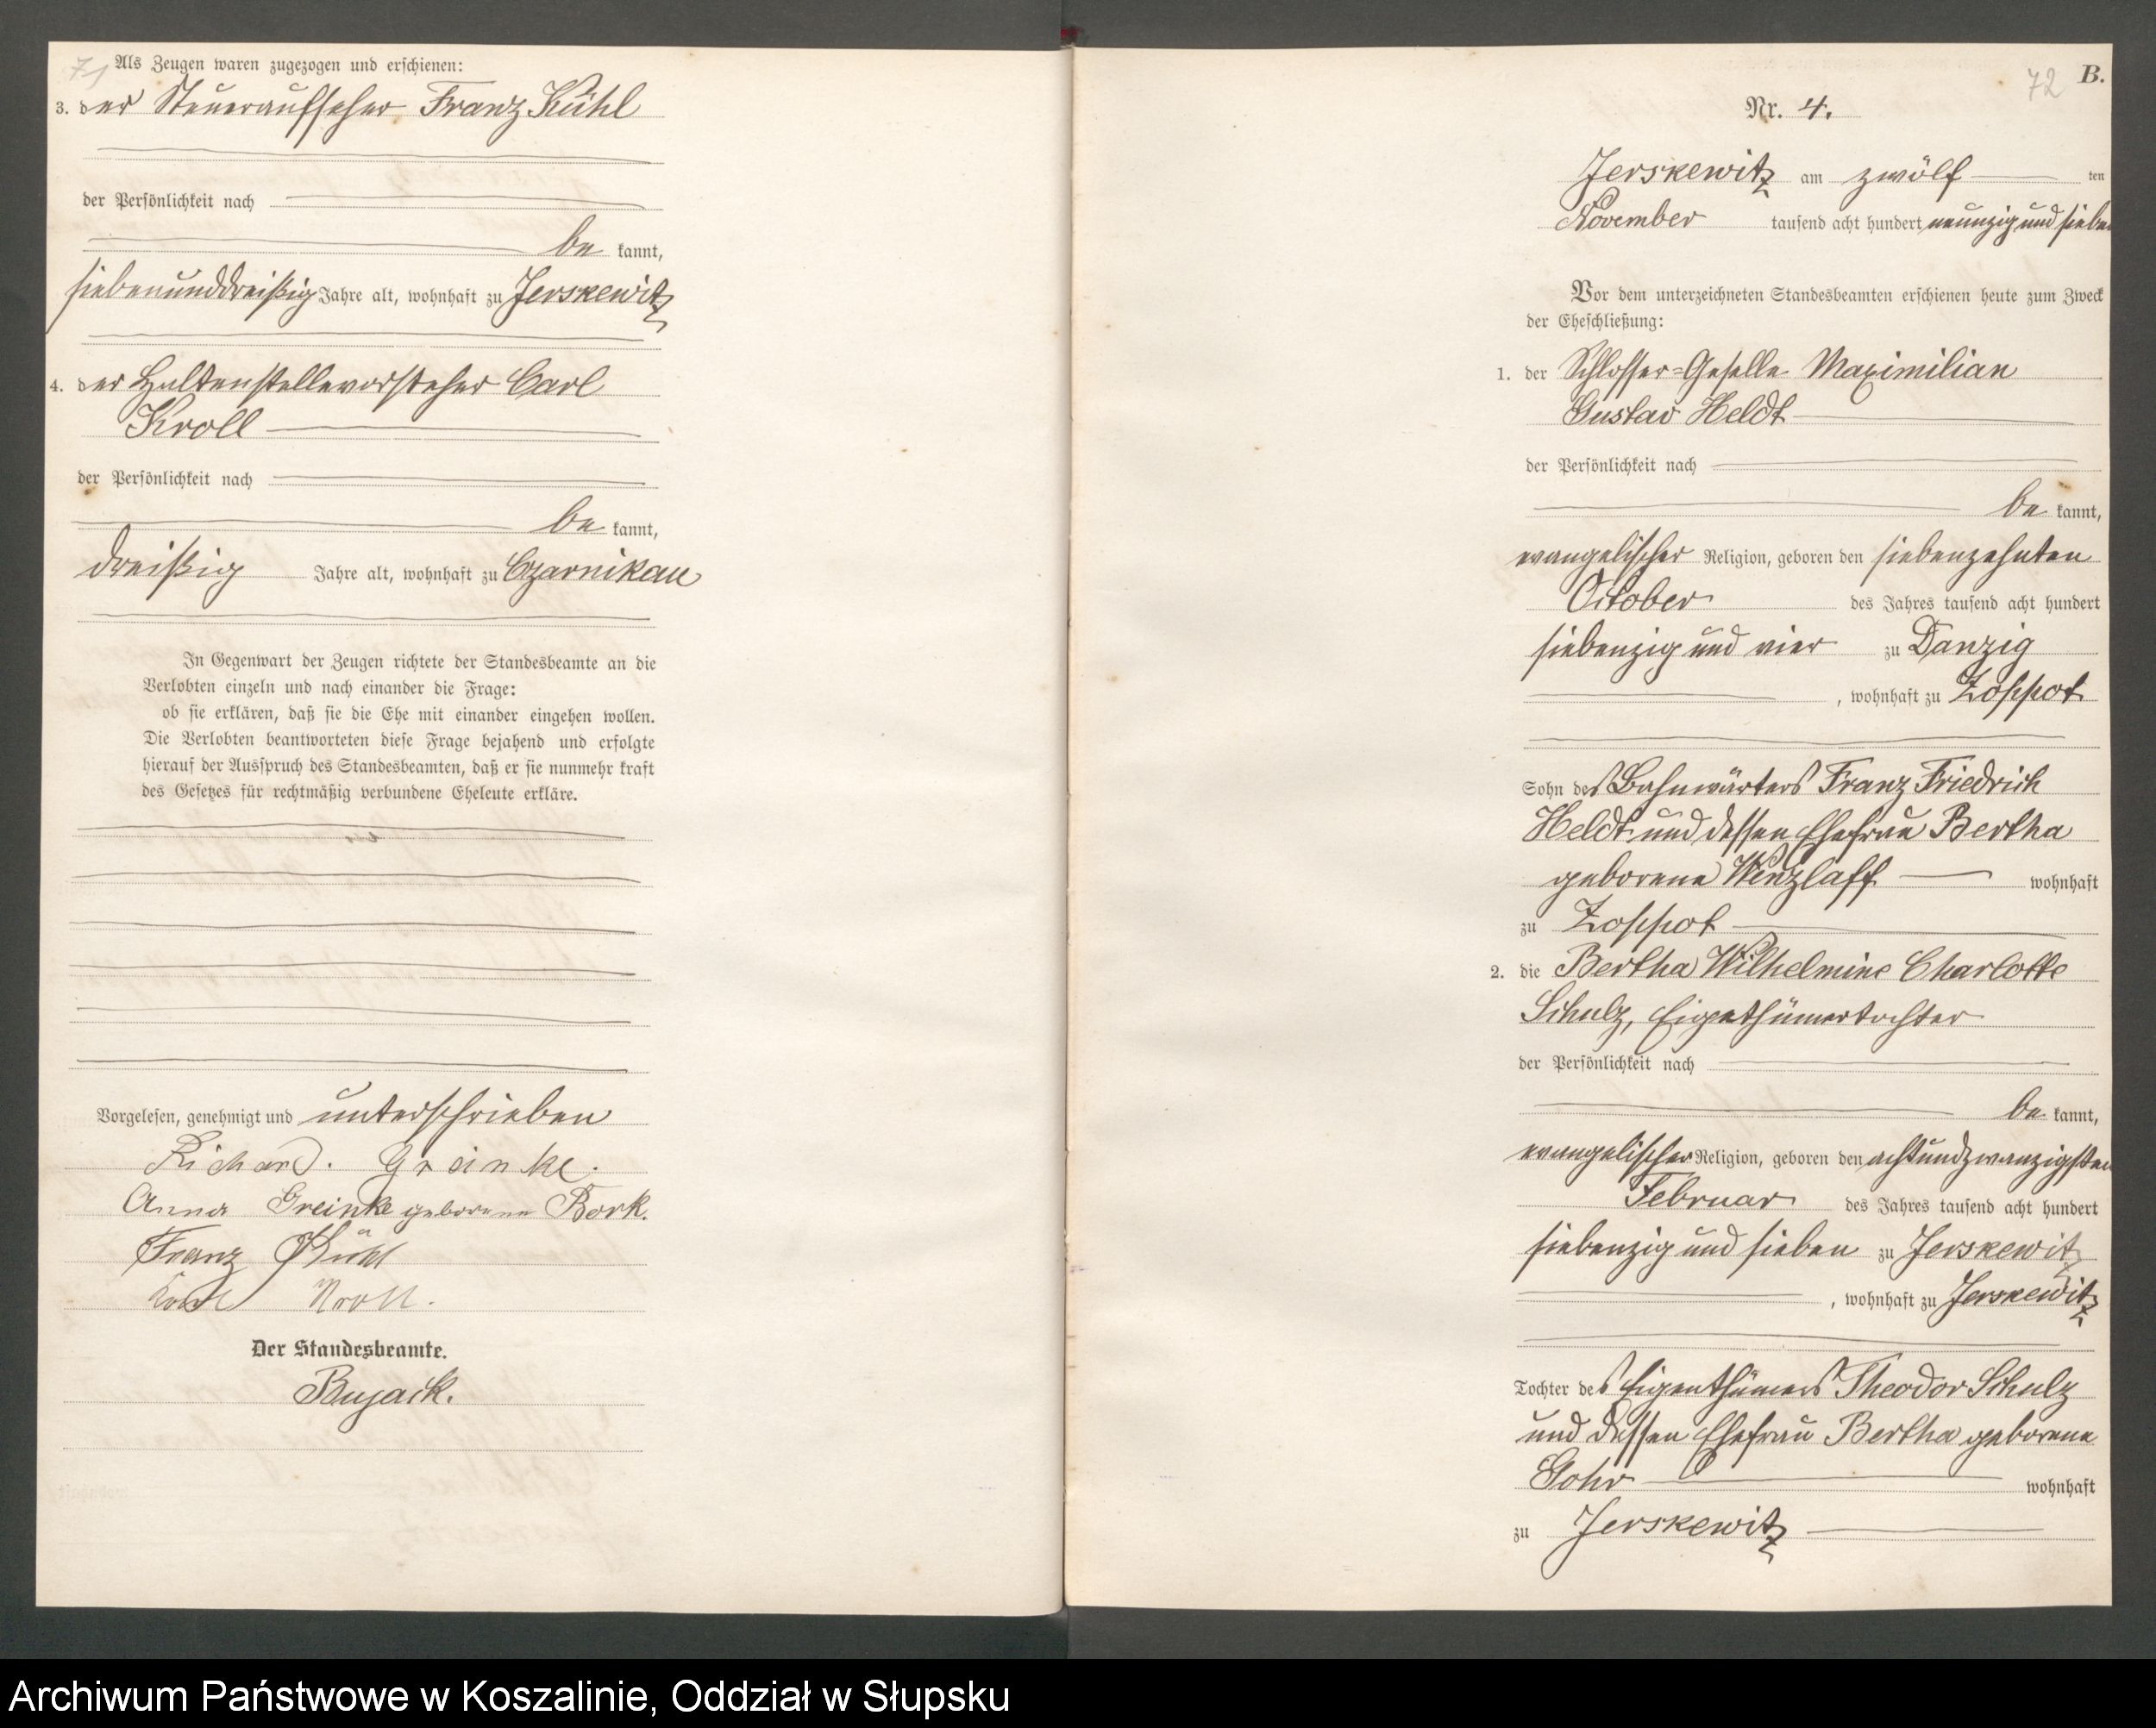 71
Als Zeugen waren zugezogen und erschienen:
3. der Steueraufseher Franz Kühl
der Persönlichkeit nach
be kannt,
siebenunddreißig Jahre alt, wohnhaft zu Jerskewitz
4. der Haltenstellevorsteher Carl
Kroll
der Persönlichkeit nach
be kannt,
dreißig Jahre alt, wohnhaft zu Czarnikau
In Gegenwart der Zeugen richtete der Standesbeamte an die
Verlobten einzeln und nach einander die Frage:
ob sie erklären, daß sie die Ehe mit einander eingehen wollen.
Die Verlobten beantworteten diese Frage bejahend und erfolgte
hierauf der Ausspruch des Standesbeamten, daß er sie nunmehr kraft
des Gesetzes für rechtmäßig verbundene Eheleute erkläre.
Vorgelesen, genehmigt und unterschrieben
Richard. Greinke.
Anna Greinke geborene Bork.
Franz Kühl
Kroll.
Der Standesbeamte.
Bujack.
72 B.
Nr. 4.
Jerskewitz am zwölf ten
November tausend acht hundert neunzig und sieben
Vor dem unterzeichneten Standesbeamten erschienen heute zum Zweck
der Eheschließung:
1. der Schlosser=Geselle Maximilian
Gustav Heldt
der Persönlichkeit nach
be kannt,
evangelischer Religion, geboren den siebenzehnten
October des Jahres tausend acht hundert
siebenzig und vier zu Danzig
, wohnhaft zu Zoppot
Sohn des Bahnwärters Franz Friedrich
Heldt und dessen Ehefrau Bertha
geborene Wenzlaff wohnhaft
zu Zoppot
2. die Bertha Wilhelmine Charlotte
Schulz, Eigenthümertochter
der Persönlichkeit nach
be kannt,
evangelischer Religion, geboren den achtundzwanzigsten
Februar des Jahres tausend acht hundert
siebenzig und sieben zu Jerskewitz
, wohnhaft zu Jerskewitz
Tochter des Eigenthümers Theodor Schulz
und dessen Ehefrau Bertha geborene
Gohr wohnhaft
zu Jerskewitz
Archiwum Państwowe w Koszalinie, Oddział w Słupsku